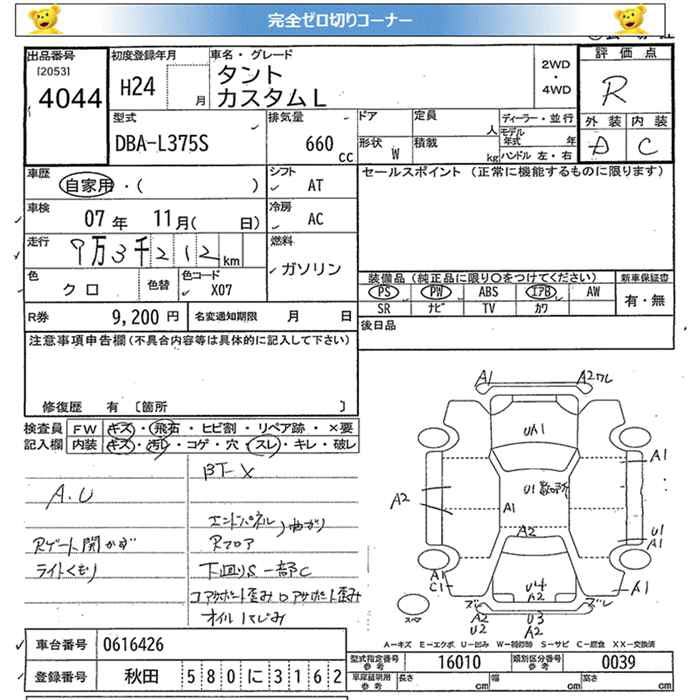 完全ゼロ切りコーナー
出品番号
[2053]
4044
初度登録年月
H24
月
車名・グレード
タント
カスタムL
2WD
・
4WD
評価点
R
外装 内装
D C
型式
DBA-L375S
排気量
660
cc
ドア
形状
W
定員
人
積載
kg
ディーラー・並行
モデル
年式 年
ハンドル 左・右
車歴
自家用・( )
シフト
AT
セールスポイント (正常に機能するものに限ります)
車検
07 年 11 月( 日)
冷房
AC
走行
9万3千212 km
燃料
ガソリン
色
クロ
色替
色コード
X07
装備品(純正品に限り○をつけてください)
PS PW ABS エアB AW
SR ナビ TV カワ
新車保証書
有・無
R券
9,200 円
名変通知期限 月 日
後日品
注意事項申告欄(不具合内容等は具体的に記入して下さい)
修復歴 有 〔箇所 〕
検査員
記入欄
FW キズ・飛石・ヒビ割・リペア跡・×要
内装 キズ・汚レ・コゲ・穴・スレ・キレ・破レ
BT-X
A.U
エンドパネル
Rフロア
曲がり
Rゲート開かず
ライトくもり
下廻りS 一部C
コアサポート歪み ロアサポート歪み
オイルにじみ
A1
A2ワレ
UA1
A1
A2
A1
U1
A2
U1
A1
A1
C1
U4
A2
A1
ズレ
A2
U2
U3
A2
ズレ
スペア
A-キズ E-エクボ U-凹み W-補修跡 S-サビ C-腐食 XX-交換済
車台番号
0616426
登録番号
秋田 580に3162
型式指定番号
参考
16010
類別区分番号
参考
0039
車庫証明用
参考
長さ cm
幅 cm
高さ cm